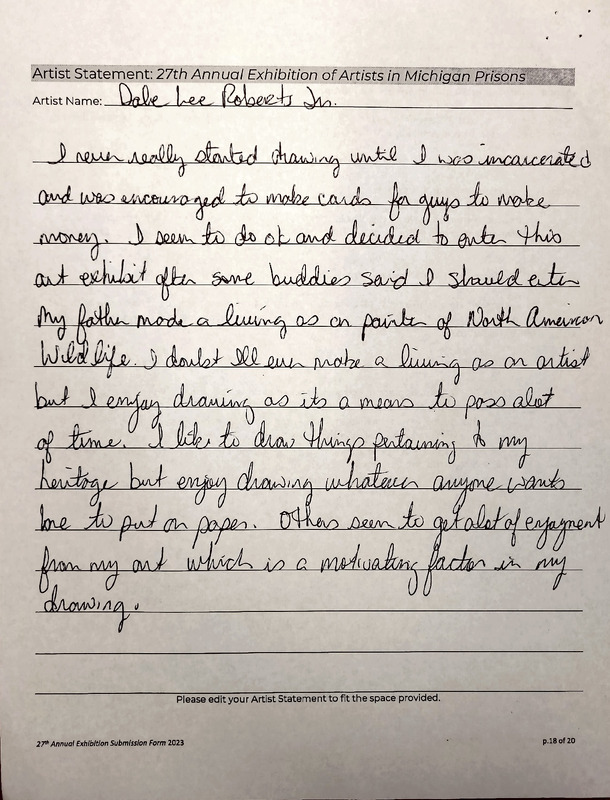 Artist Statement: 27th Annual Exhibition of Artists in Michigan Prisons
Artist Name: Dale Lee Roberts Jr.
I never really started drawing until I was incarcerated
and was encouraged to make cards for guys to make
money. I seem to do ok and decided to enter this
art exhibit after some buddies said I should enter
My father made a living as an painter of North American
Wildlife. I doubt Ill ever make a living as an artist
but I enjoy drawing as its a means to pass alot
of time. I like to draw things pertaining to my
heritage but enjoy drawing whatever anyone wants
me to put on paper. Others seem to get alot of enjoyment
from my art which is a motivating factor in my
drawing.
Please edit your Artist Statement to fit the space provided.
27th Annual Exhibition Submission Form 2023
p.18 of 20